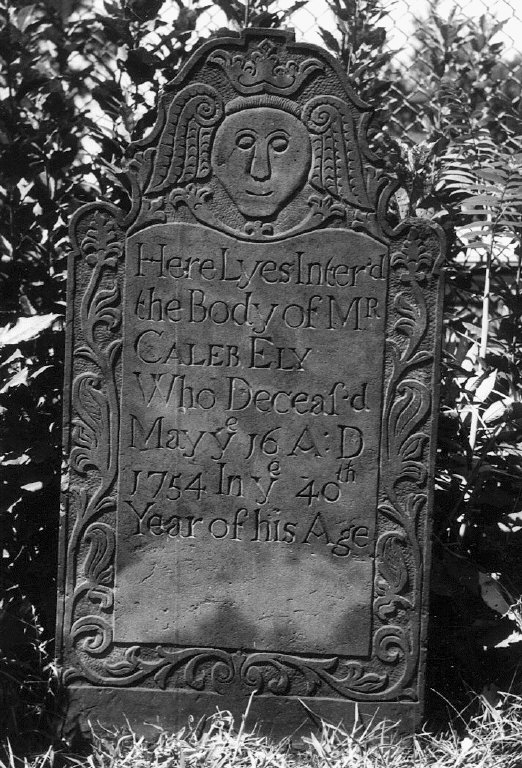 Here Lyes Inter'd
the Body of Mʀ
CALEB ELY
Who Deceaſ'd
May yᵉ 16 A: D
1754 In yᵉ 40ᵗʰ
Year of his Age